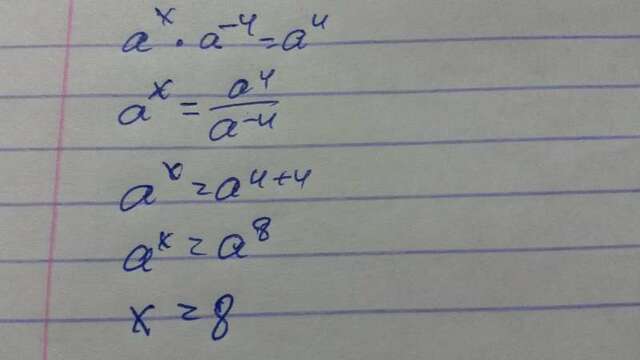 a^x · a^-4 = a^4
a^x = a^4/a^-4
a^x = a^4+4
a^x = a^8
x = 8